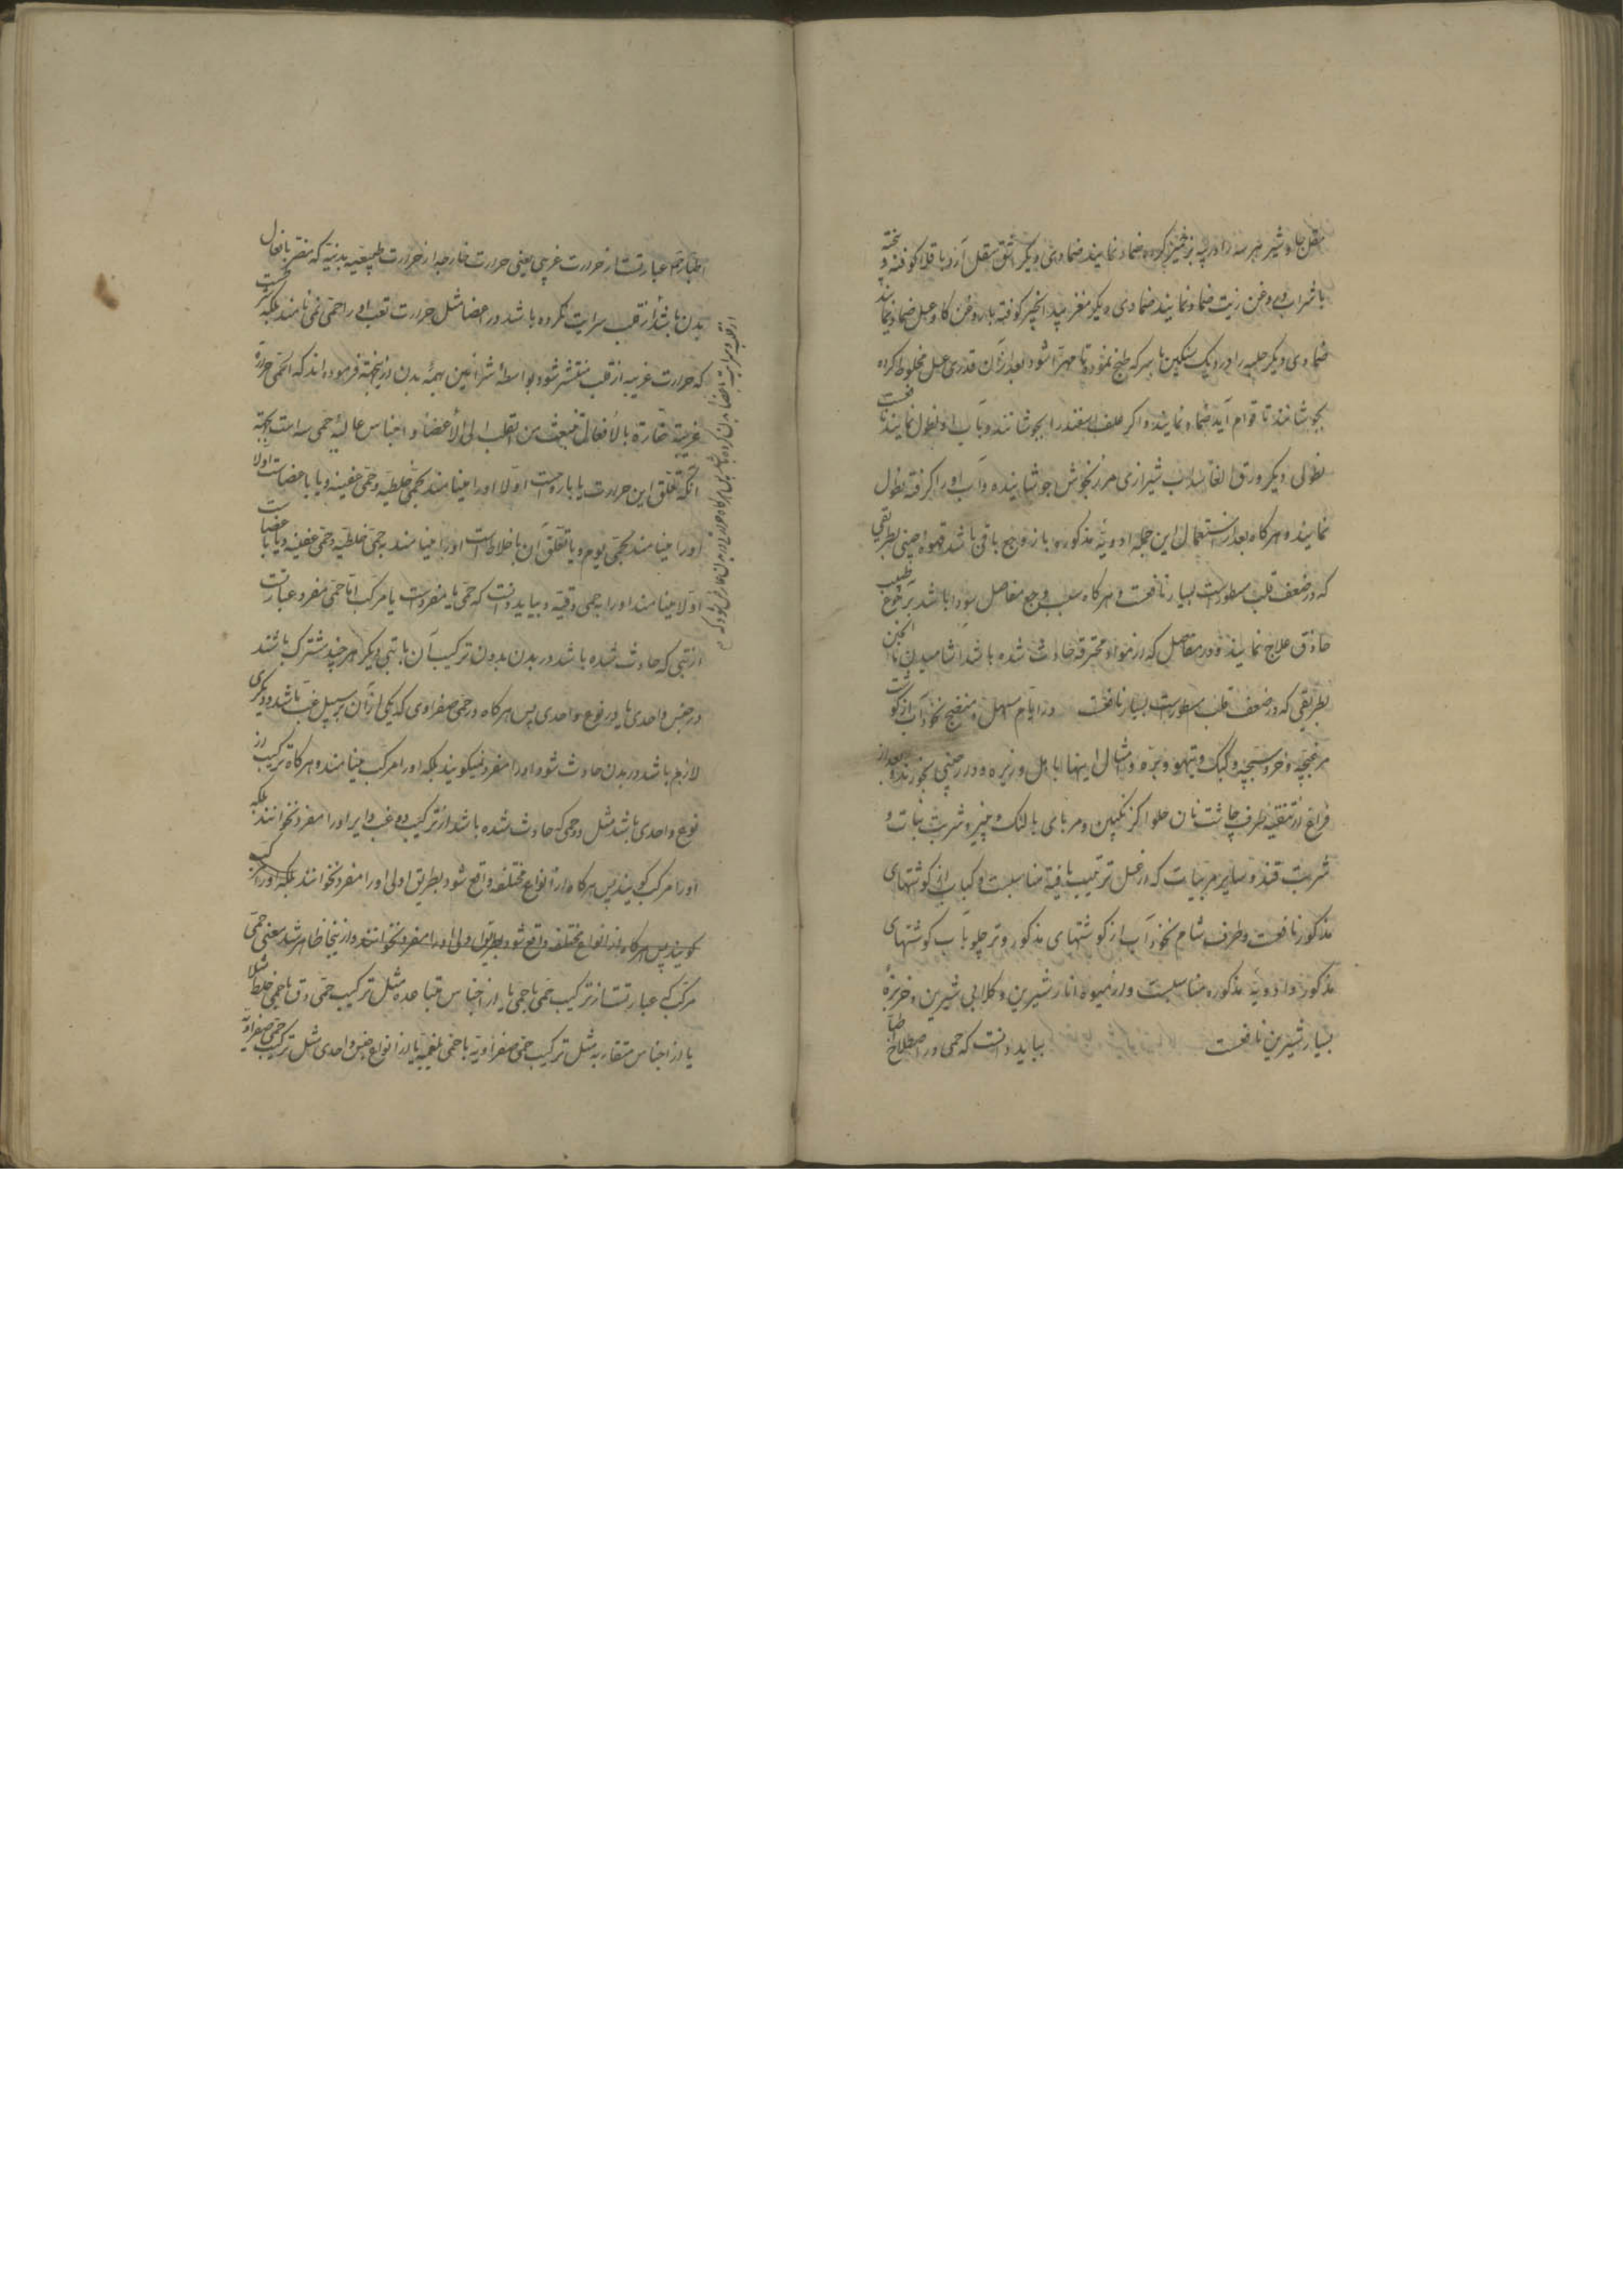 مقل جاوشیر هر سه را در پیه بز خمیر کرده ضماد نمایند ضمادی دیگر اشق مقل آرد باقلا کوفته و پخته
با شراب و روغن زیت ضماد نمایند ضمادی دیگر مغز بید انجیر کوفته با روغن کاو و عسل ضماد نمایند
ضمادی دیگر حلبه را در دیک سنکین با سرکه طبخ نموده تا مهرّا شود بعد از آن قدری عسل مخلوط کرده
بجوشانند تا قوام آید ضماد نمایند و اکر علف اسفند را بجوشانند و بآب او نطول نمایند نافعست
نطولی دیکر ورق الغار سداب شیرازی مرزنجوش جوشانیده و آب او را کرفته نطول
نمایند و هر کاه بعد از استعمال این جمله ادویهٔ مذکوره باز وجع باقی باشد قهوه چینی بطریقی
که در ضعف قلب مسطورست بسیار نافعست و هر کاه سبب وجع مفاصل سودا باشد برجوع طبیب
حاذق علاج نمایند و در مفاصل که از مواد محترقه حادث شده باشد آشامیدن ماء الجبن
بطریقی که در ضعف قلب مسطورست بسیار نافعست در ایام مسهل و منضج نخودآب از کوشت
مرغبچه و خروسبچه و کبک و تیهو و بره و امثال اینها با هل و زیره و دارچینی بخورند و بعد از
فراغ از تنقیه طرف چاشت نان حلوا کزنکبین و مربای بالنک و پنیر و شربت نبات و
شربت قند و سایر مربیات که از عسل ترتیب یافته مناسبست و کباب از کوشتهای
مذکور نافعست و طرف شام نخودآب از کوشتهای مذکور و تر چلو بآب کوشتهای
مذکور و ادویهٔ مذکوره مناسبست و از میوه انار شیرین و کلابی شیرین و خربزهٔ
بسیار شیرین نافعست بباید دانست که حمی در اصطلاح اطبا
عبارتست از حرارت غریبی یعنی حرارت خارجه از حرارت طبیعیه بدنیه که مضر بافعال
بدن باشد از قلب سرایت نکرده باشد در اعضا مثل حرارت تعب او را حمی نمی نامند بلکه حمی آنست
که حرارت غریبه از قلب منتشر شود بواسطهٔ شرائین بهمهٔ بدن از اینجهة فرموده اند که الحمّی حرارة
غریبة ضارّة بالأفعال تنبعث من القلب الی الأعضاء و اجناس عالیهٔ حمی سه است بجهة
آنکه تعلق این حرارت یا باروحست اولا او را مینامند بحمّی خلطیه و حمّی عفنیه و یا باعضاست اولا
او را مینامند بحمّی یوم و یا تعلق آن باخلاط است او را مینامند به حمّی خلطیّه و حمّی عفنیه و یا باعضاست
اوّلا مینامند او را به حمی دقیّه و بباید دانست که حمّی یا مفردست یا مرکب امّا حمّی مفرد عبارتست
از تبی که حادث شده باشد در بدن بدون ترکیب آن با تبی دیکر هر چند مشترک باشند
در جنس واحدی یا در نوع واحدی پس هر کاه در حمّی صفراوی که یکی از آن بر سبیل غب باشد و دیکری
لازم باشد در بدن حادث شود او را مفرد نمیکویند بلکه او را مرکب مینامند و هر کاه ترکیب از
نوع واحدی باشد مثل دو حمی که حادث شده باشد از ترکیب دو غب دایر او را مفرد نخوانند بلکه
او را مرکب کویند پس هر کاه از انواع مختلفه واقع شود بطریق اولی او را مفرد نخوانند بلکه او را مرکب
کویند پس هر کاه از انواع مختلف واقع شود بطریق اولی او را مفرد نخوانند و از اینجا ظاهر شد معنی حمّی
مرکب که عبارتست از ترکیب حمّی با حمّی یا از اجناس متباعده مثل ترکیب حمّی دق با حمّی خلط مثلا
یا از اجناس متقاربه مثل ترکیب حمّی صفراویّه با حمّی بلغمیّه یا از انواع جنس واحدی مثل ترکیب حمّی صفراویّه